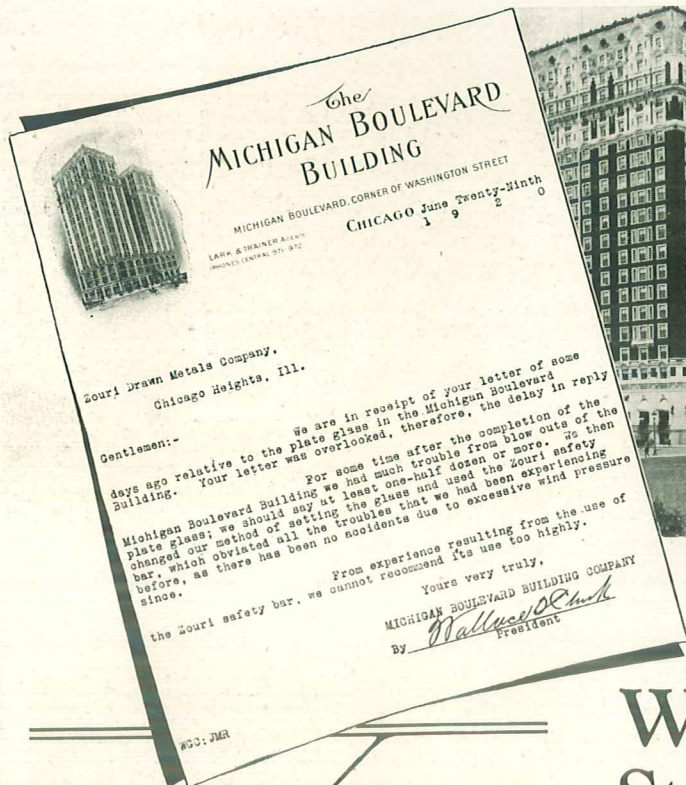 The
MICHIGAN BOULEVARD
BUILDING
MICHIGAN BOULEVARD, CORNER OF WASHINGTON STREET
LARK & TRAINER AGENTS
PHONES CENTRAL 971-972
CHICAGO June Twenty-Ninth
1 9 2 0
Zouri Drawn Metals Company,
Chicago Heights, Ill.
Gentlemen:-
We are in receipt of your letter of some
days ago relative to the plate glass in the Michigan Boulevard
Building. Your letter was overlooked, therefore, the delay in reply
For some time after the completion of the
Michigan Boulevard Building we had much trouble from blow outs of the
plate glass; we should say at least one-half dozen or more. We then
changed our method of setting the glass and used the Zouri safety
bar, which obviated all the troubles that we had been experiencing
before, as there has been no accidents due to excessive wind pressure
since.
From experience resulting from the use of
the Zouri safety bar, we cannot recommend its use too highly.
Yours very truly,
MICHIGAN BOULEVARD BUILDING COMPANY
By Wallace
President
WGC:JMR
W